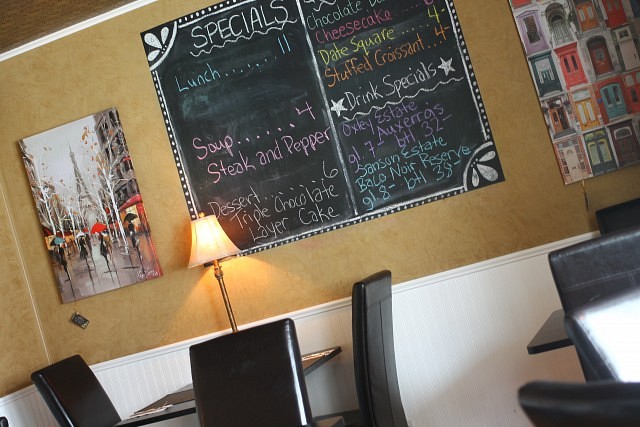 SPECIALS
Lunch.......11
Soup......4
Steak and Pepper
Dessert.......6
Triple Chocolate
Layer Cake
Chocolate
Cheesecake
Date Square....4
Stuffed Croissant..4
Drink Specials
Oxley Estate
Auxerrois
gl 7- btl 32-
Sanson Estate
Baco Noir Reserve
gl 8- btl 39-